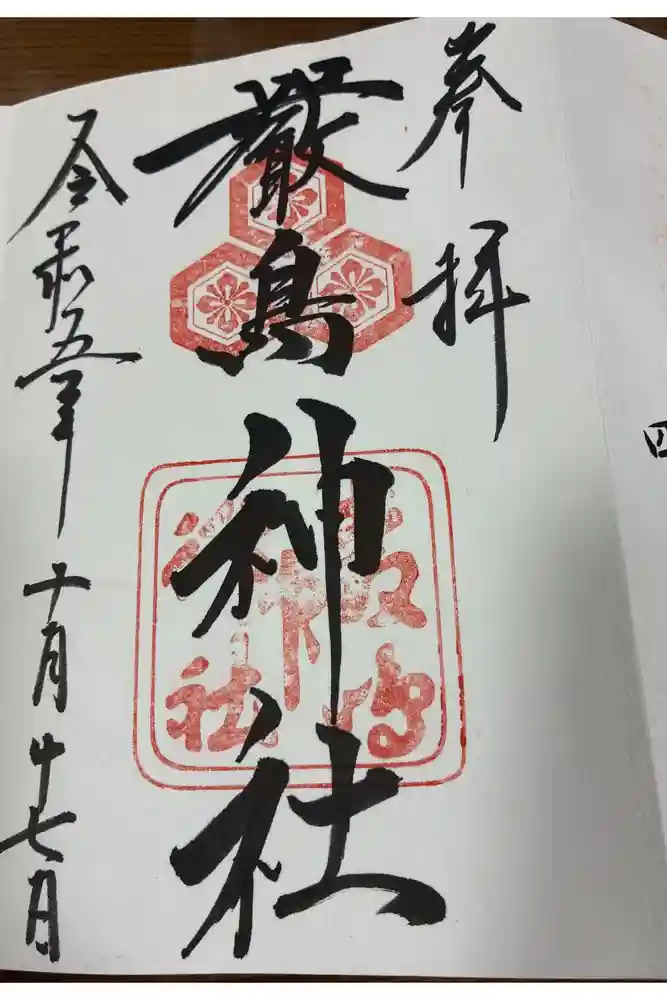 奉拝
嚴島神社
令和五年十月廿七日
四